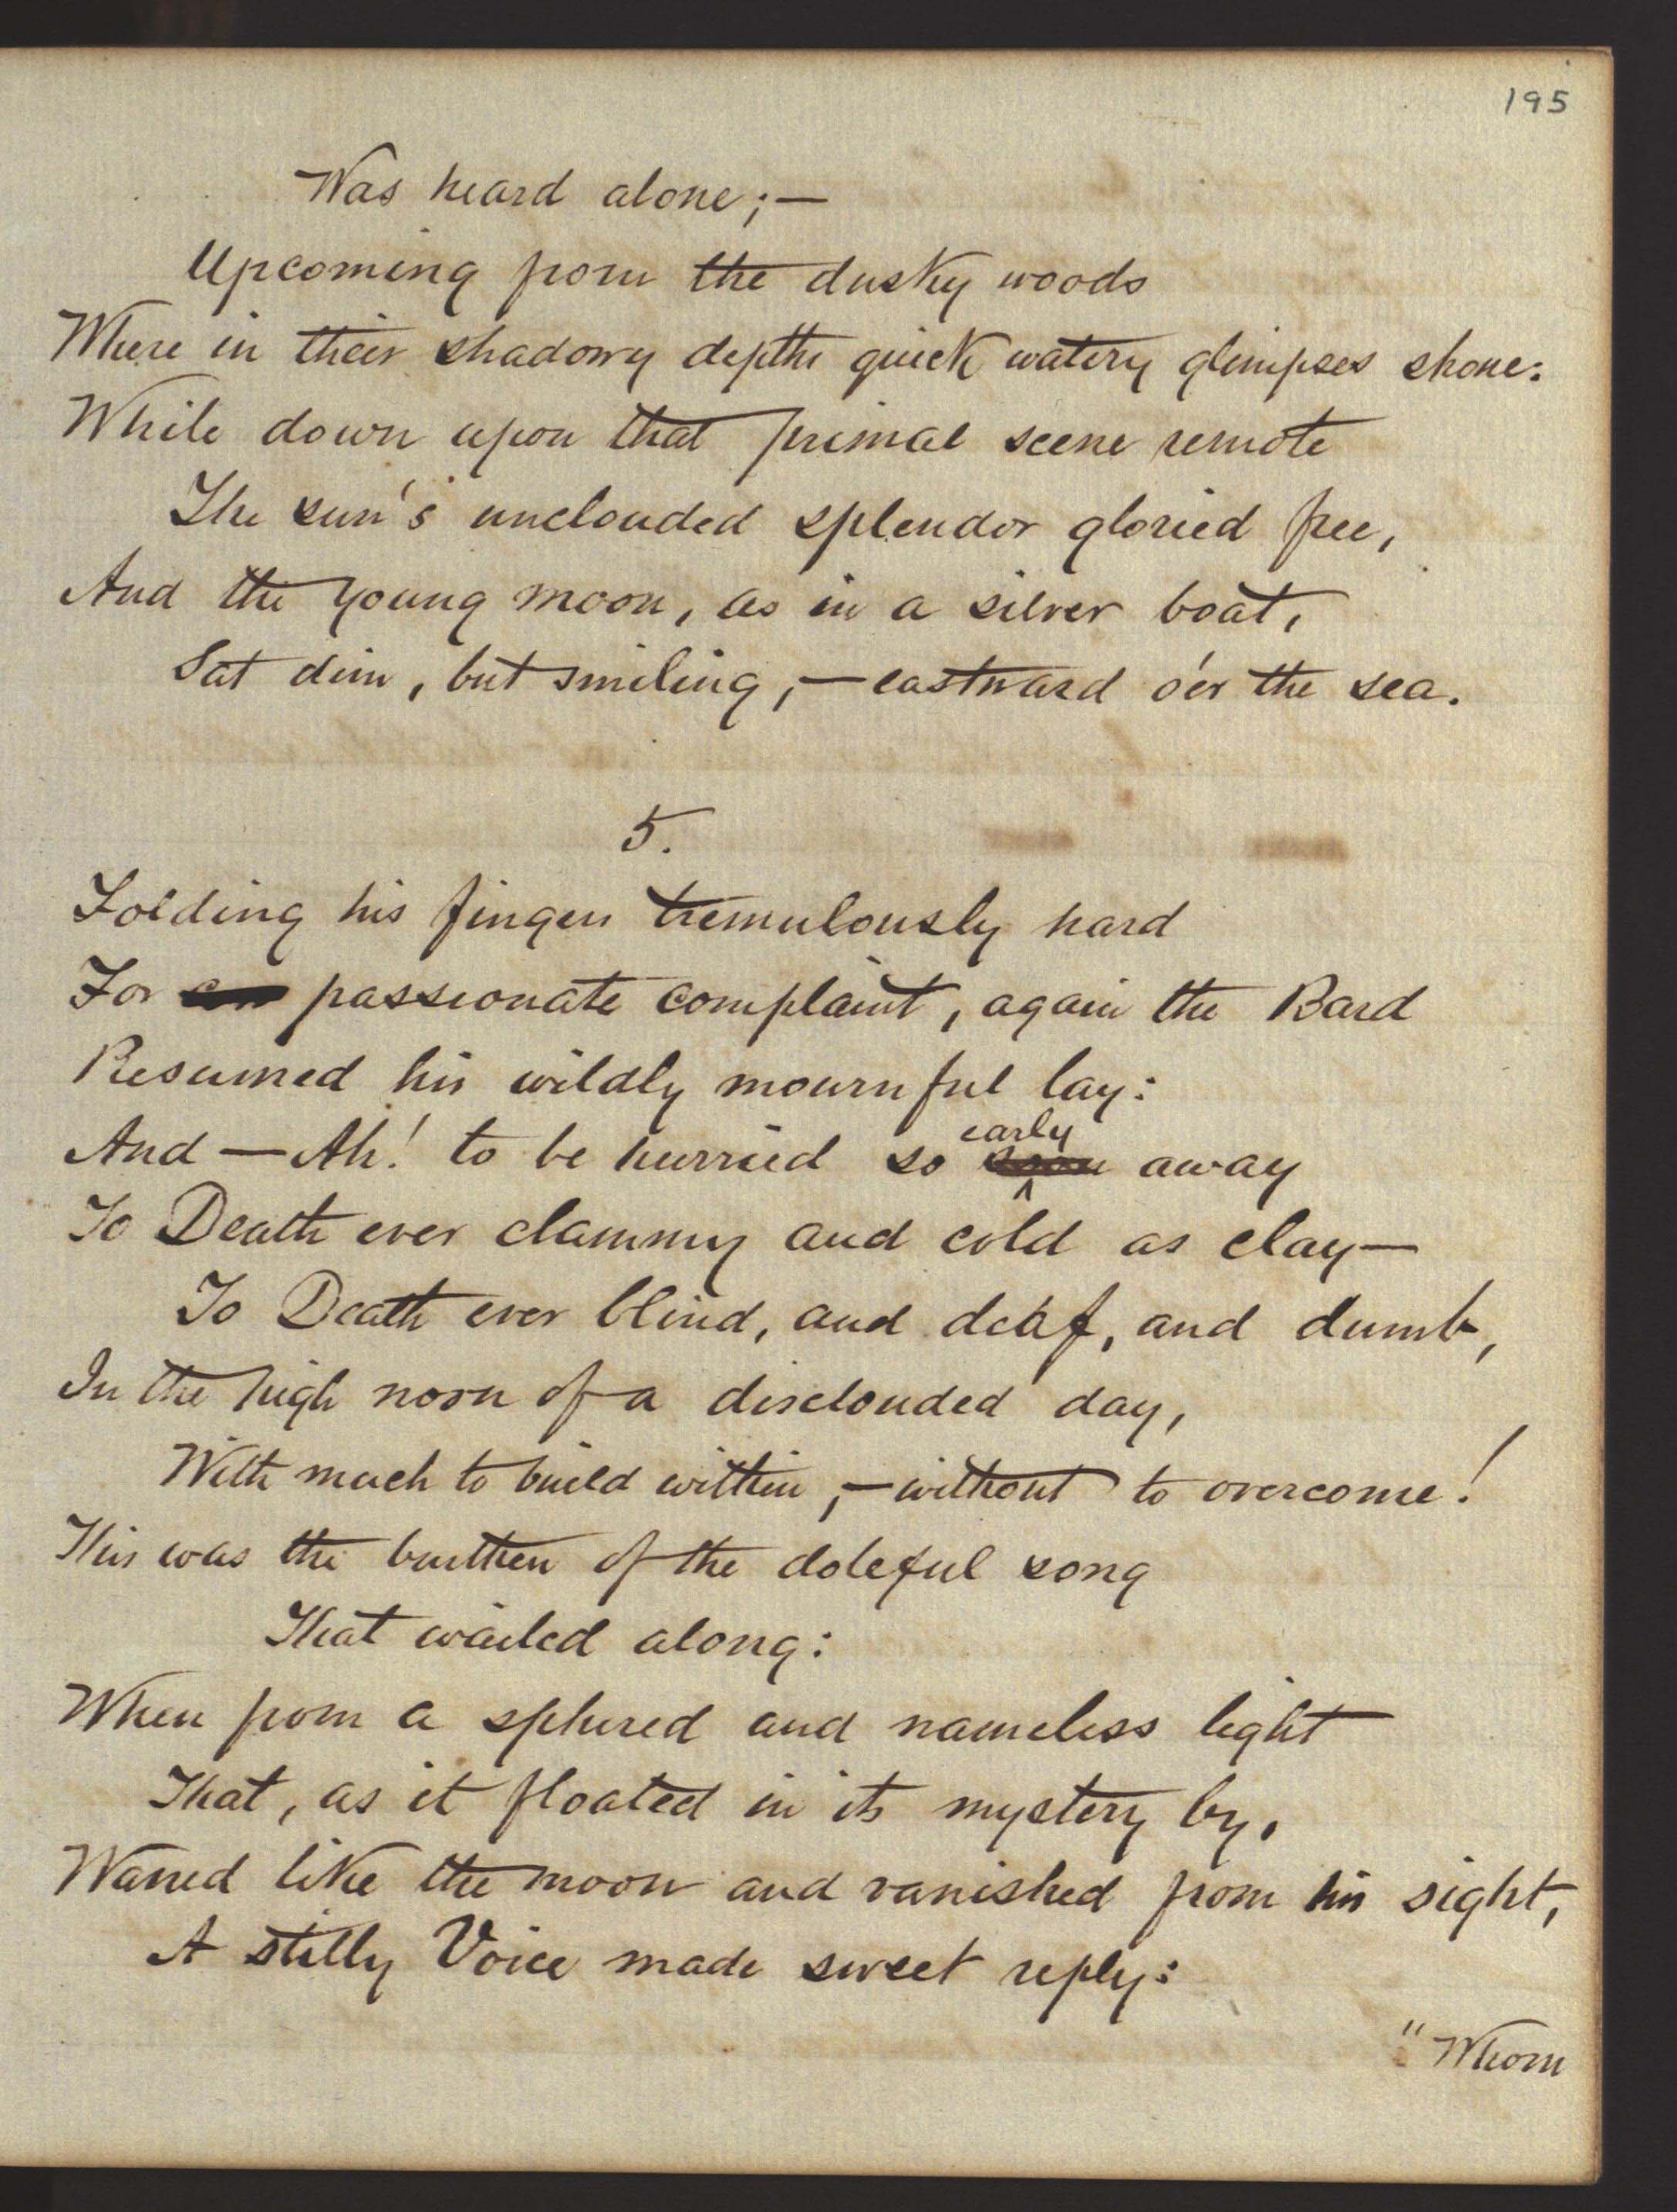 195
Was heard alone;—
Upcoming from the dusky woods
Where in their shadowy depths quick watery glimpses shone:
While down upon that primal scene remote
The sun's unclouded splendor gloried free,
And the young moon, as in a silver boat,
Sat dim, but smiling,—eastward o'er the sea.
5.
Folding his fingers tremulously hard
For passionate complaint, again the Bard
Resumed his wildly mournful lay:
early
And—Ah! to be hurried so soon away
To Death ever clammy and cold as clay—
To Death ever blind, and deaf, and dumb,
In the high noon of a disclouded day,
With much to build within,—without to overcome!
This was the burthen of the doleful song
That wailed along:
When from a sphered and nameless light
That, as it floated in its mystery by,
Waned like the moon and vanished from his sight,
A stilly Voice made sweet reply:
"Whom